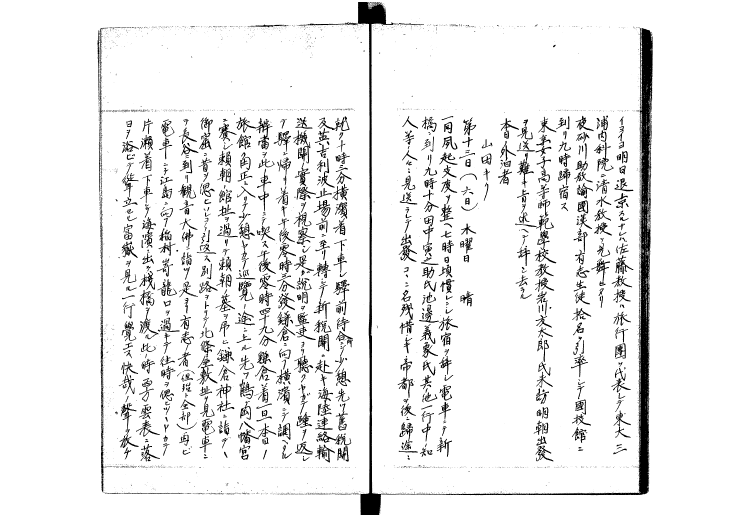 イヨイヨ明日退京スルナレハ佐藤教授ハ旅行團ヲ代表シテ東大三
浦内科院ニ清水教授ヲ見舞ヒタリ
夜砂川助教諭國漢部有志生徒拾名ヲ引率シテ國技館ニ
到リ九時歸宿ス
東京女子高等師範學校教授岩川友太郎氏来訪明朝出發
ヲ見送リ難キ旨ヲ述ヘテ辞シ去ル
本日外泊者
山田キク
第十三日(六日) 木曜日 晴
一同夙起支度ヲ整ヘ七時日頃慣レシ旅宿ヲ辞シ電車ニテ新
橋ニ到リ九時十分田中寅之助氏池邊義象氏其他一行中ノ知
人等ノ人々ニ見送ラレテ出發ココニ名残惜キ帝都ヲ後ニ歸途ニ
就ク十時三分横濱着下車シ驛前待合ニテ少憩先ツ舊税關
及英吉利波止場前ニ至リ轉シテ新税關ニ赴キ海陸連絡輸
送機關ノ實際ヲ視察シ是カ説明ヲ監吏ヨリ聴クヤガテ踵ヲ返シ
テ驛ニ歸リ着キ午後零時三分發鎌倉ニ向フ横濱ニテ調ヘタル
辨當ヲ此車中ニテ喫ス午後零時四十九分鎌倉着一旦本日ノ
旅館角正ニ入リ少憩ヤガテ巡覧ノ途ニ上ル先ツ鶴ヶ岡八幡宮
ニ賽シ頼朝ノ館址ヲ過リテ頼朝ノ墓ヲ弔ヒ鎌倉神社ニ詣テ
御窟ニ昔ヲ偲ビ引返ス別路ヲトリテ北條屋敷址ヲ見電車ニ
テ長谷ニ到リ觀音大佛ニ詣ヅ是ヨリ有志者(殆ント全部)再ビ
電車ニテ江島ニ向フ稲村ヶ崎龍口ヲ過キテ往時ヲ偲ヒツツヤガテ
片瀬着下車シテ海濱ニ出テ棧橋ヲ渡ル此時西方雲表ニ落
日ヲ浴ビテ聳立セル富嶽ヲ見ル一行覺エス快哉ノ聲ヲ放テ